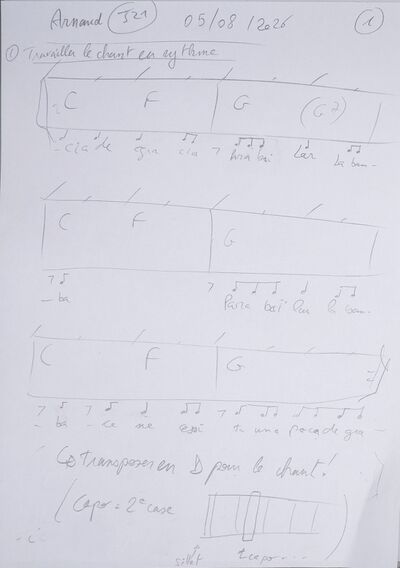 Arnaud 321 05/08/2026 1
1 Travailler le chant en rythme
C F G (G7)
- cia de gra cia Para bai lar la bam-
C F G
- ba Para bai lar la bam-
C F G
- ba - se ne ce si ta una poca de gra -
↳ transposer en D pour le chant !
(Capo = 2e case
sillet capo ...